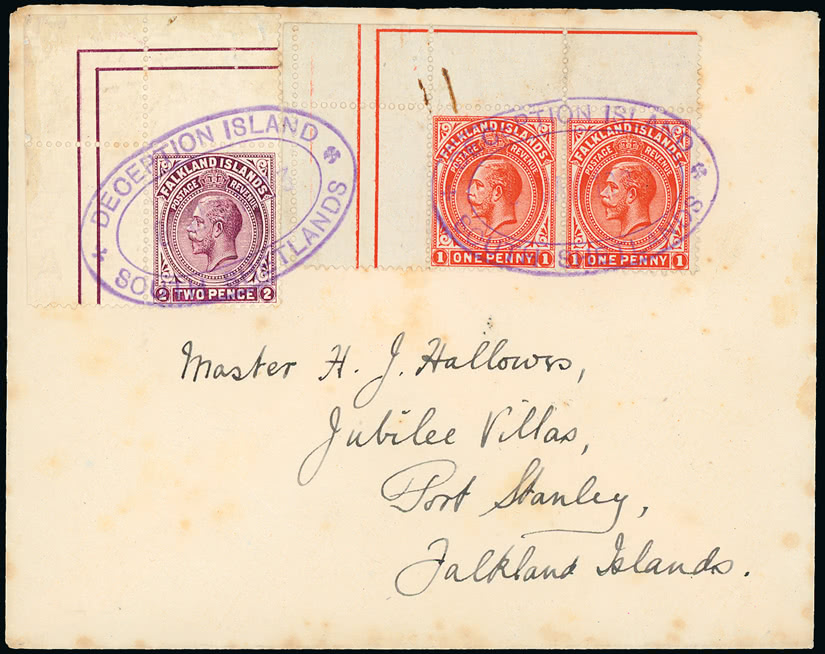 DECEPTION ISLAND
SOUTH SHETLANDS
FALKLAND ISLANDS
POSTAGE REVENUE
2 TWO PENCE 2
DECEPTION ISLAND
FALKLAND ISLANDS
POSTAGE REVENUE
1 ONE PENNY 1
FALKLAND ISLANDS
POSTAGE REVENUE
1 ONE PENNY 1
Master H. J. Hallows,
Jubilee Villas,
Port Stanley,
Falkland Islands.